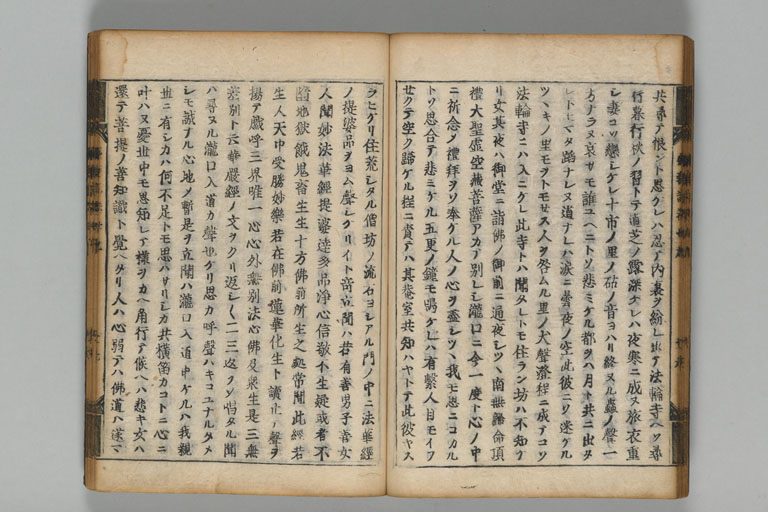 共尋テ恨ント思ケレハ忍テ内裏ヲ紛レ出テ法輪寺ヘソ尋
行暮行秋ノ習トテ道芝ノ露深ケレハ夜寒ニ成ヌ旅衣重
シ妻コソ戀シケレ十市ノ里ノ砧ノ音ヨハリ終ヌル蟲ノ聲一
方ナラヌ哀サモ誰ユヘニトソ悲ミケル都ヲハ月ト共ニ出タ
レトモマタ踏ナレヌ道ナレハ涙ニ曇夜ノ空此彼ニソ迷ケル
ツヽキノ里モヲトモセス人ヲ咎ムル里ノ犬聲澄程ニ成テコソ
法輪寺ニハ入ニケレ此寺トハ聞タレトモ住ラン坊ハ不知ケ
リ女其夜ハ御堂ニ詣佛ノ御前ニ通夜シツヽ南無歸命頂
禮大聖虚空藏菩薩アカテ別レシ瀧口ニ今一度ト心ノ中
ニ祈念ノ禮拜ヲソ奉ケル人ノ心ヲ盡シツヽ我モ思ニコカル
トソ思合テ悲ミケル五更ノ鐘モ鳴ケレハ有繋人目モイフ
セクテ空ク歸ケル程ニ責テハ其菴室共知ハヤトテ此彼ヤス
ラヒケリ住荒シタル僧坊ノ流石ヨシアル門ノ中ニ法華經
ノ提婆品ヲヨム聲シケリイト奇立聞ハ若有善男子善女
人聞妙法華經提婆達多品淨心信敬不生疑惑者不
墮地獄餓鬼畜生生十方佛前所生之處常聞此經若
生人天中受勝妙樂若在佛前蓮華化生ト讀止ノ聲ヲ
揚テ戯呼三界唯一心心外無別法心佛及衆生是三無
差別ト云華嚴經ノ文ヲクリ返シ〱二三返クソ唱タル聞
ハ尋ヌル瀧口入道カ聲也ケリ思カ呼聲ハキコユナルタメ
シモ誠ナル心地メ暫是ヲ立聞ハ瀧口入道申ケルハ我親
世ニ有シカハ何不足トモ思ハサリシカ共横笛カコトニ心ニ
叶ハヌ憂世中モ思知レテ様ヲカヘ角行テ候ヘハ悲キ女ハ
還テ菩提ノ善知識ト覺ヘタリ人ハ心弱テハ佛道ハ遂マ